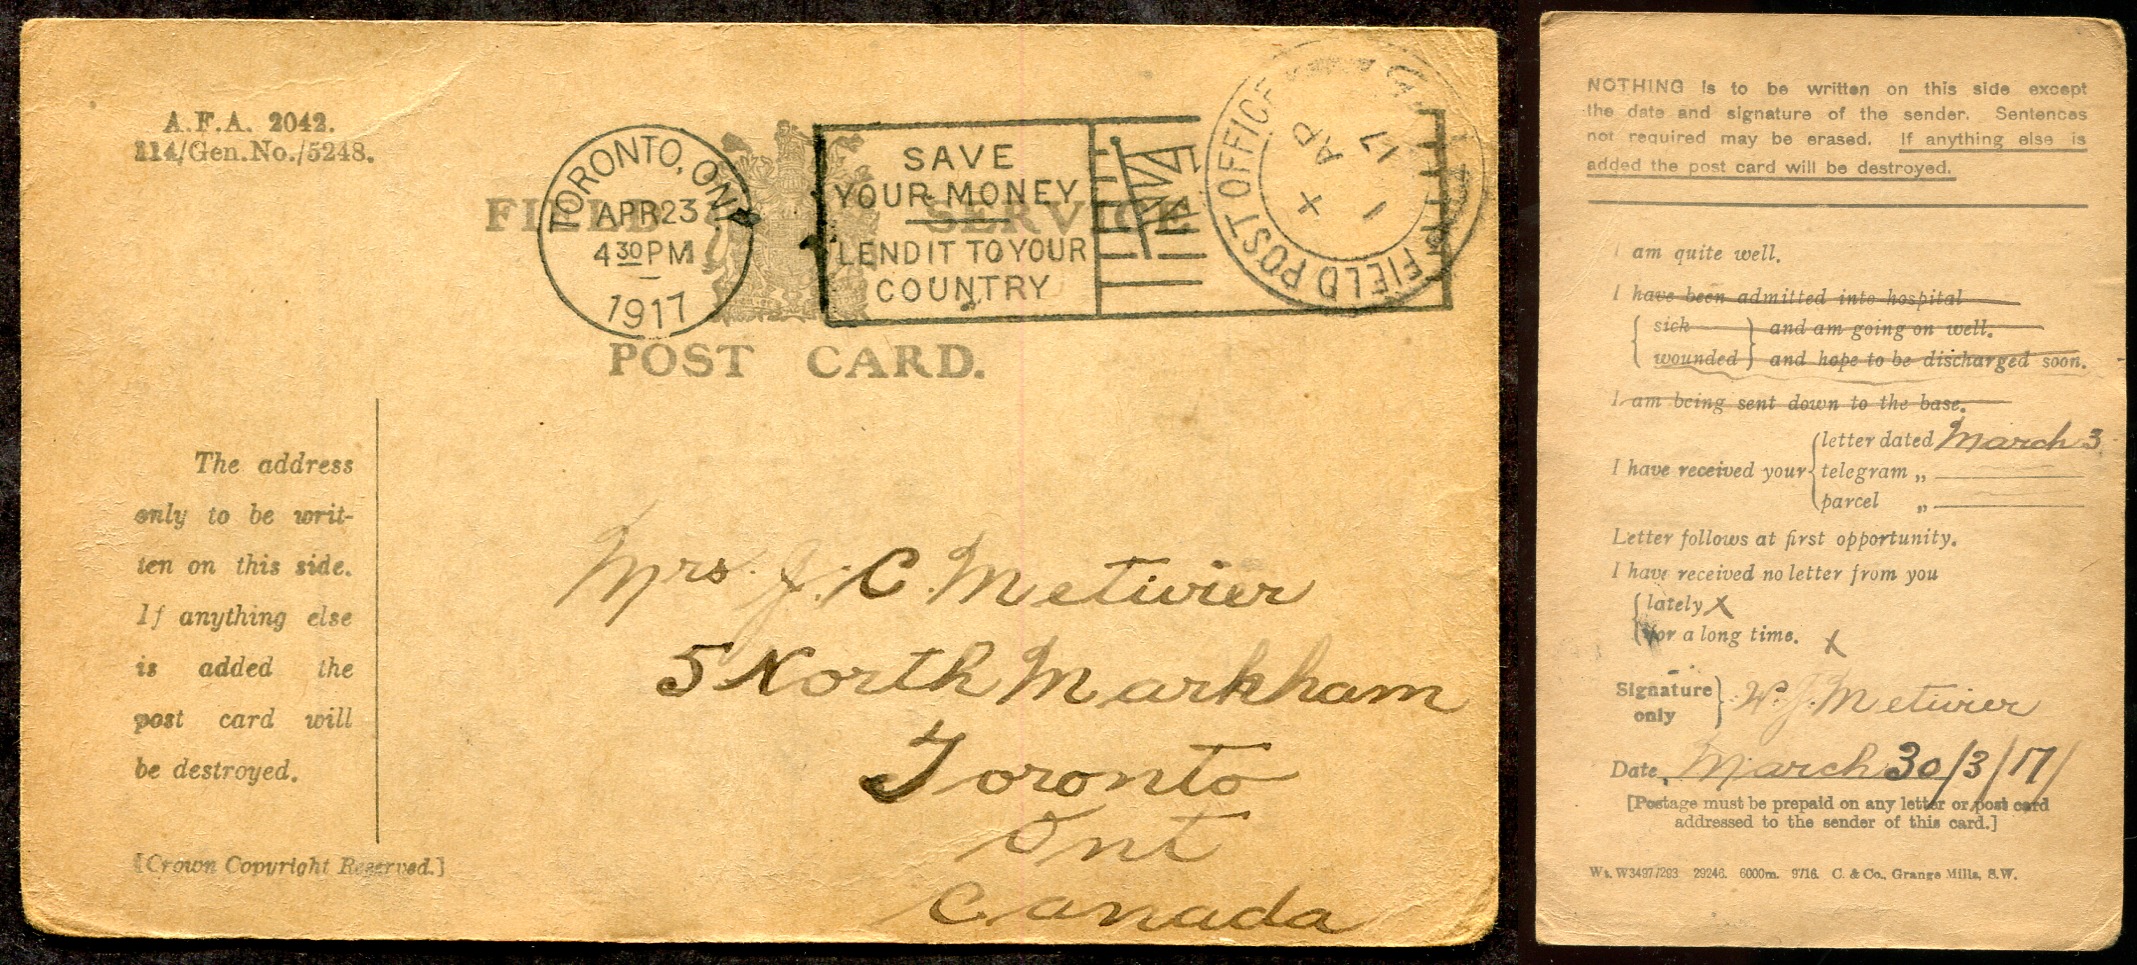 A.F.A. 2042.
114/Gen.No./5248.
FIELD SERVICE
POST CARD.
TORONTO, ONT.
APR 23
4 30 PM
1917
SAVE
YOUR MONEY
LEND IT TO YOUR
COUNTRY
FIELD POST OFFICE
X
AP
1
17
The address
only to be writ-
ten on this side.
If anything else
is added the
post card will
be destroyed.
[Crown Copyright Reserved.]
Mrs. J. C. Metivier
5 North Markham
Toronto
Ont
Canada
NOTHING is to be written on this side except
the date and signature of the sender. Sentences
not required may be erased. If anything else is
added the post card will be destroyed.
I am quite well.
I have been admitted into hospital
sick and am going on well.
wounded and hope to be discharged soon.
I am being sent down to the base.
letter dated March 3
I have received your telegram „
parcel „
Letter follows at first opportunity.
I have received no letter from you
lately X
for a long time. X
Signature
only
W. J. Metivier
Date, March 30/3/17/
[Postage must be prepaid on any letter or post card
addressed to the sender of this card.]
Wt. W3497/293 29246. 6000m. 9/16. C. & Co., Grange Mills, S.W.